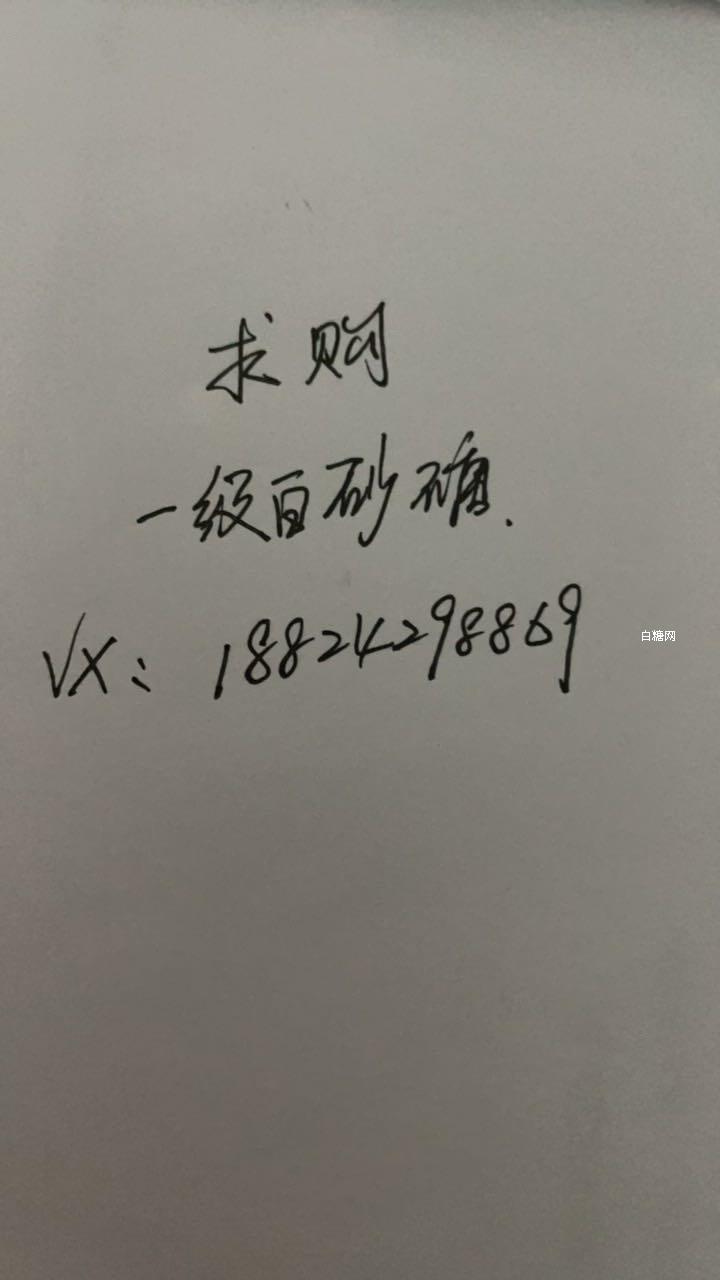 求购
一级白砂糖.
VX: 18824298869
白糖网